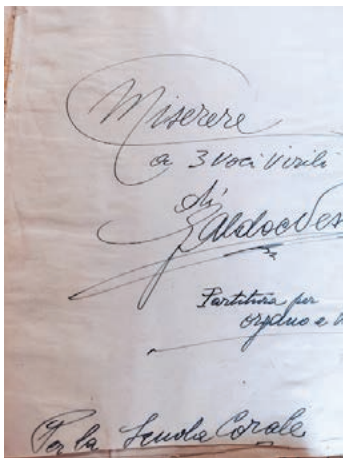 Miserere
a 3 Voci Virili
di
Partitura per
organo e
Per la Scuola Corale